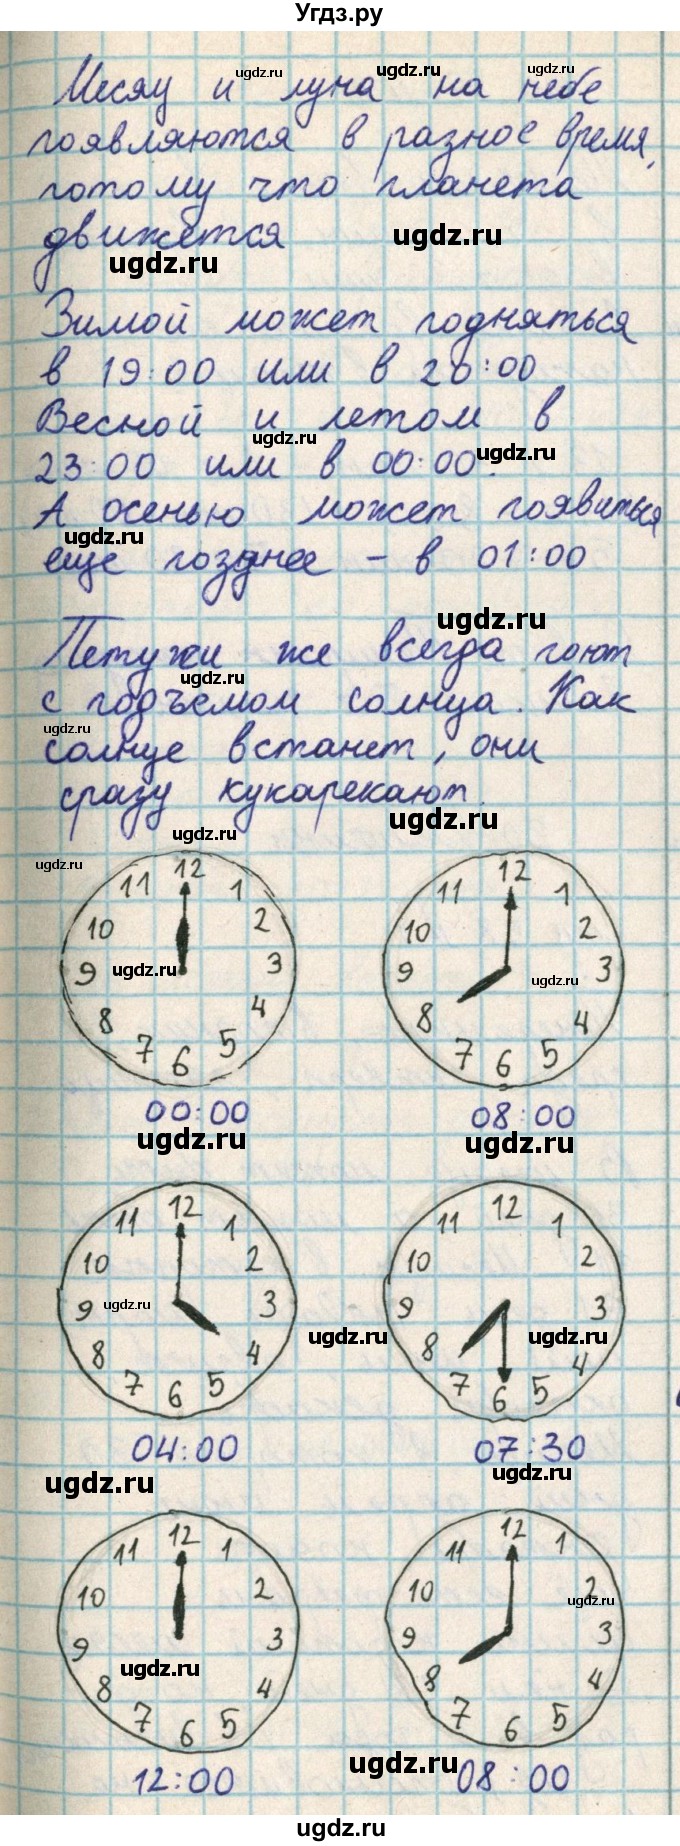 Угдз.ру
Месяц и луна на небе
появляются в разное время,
потому что планета
движется
Зимой может подняться
в 19:00 или в 20:00
Весной и летом в
23:00 или в 00:00.
А осенью может появиться
еще позднее - в 01:00
Петухи же всегда поют
с подъемом солнца. Как
солнце встанет, они
сразу кукарекают.
12 1 2 3 4 5 6 7 8 9 10 11
00:00
12 1 2 3 4 5 6 7 8 9 10 11
08:00
12 1 2 3 4 5 6 7 8 9 10 11
04:00
12 1 2 3 4 5 6 7 8 9 10 11
07:30
12 1 2 3 4 5 6 7 8 9 10 11
12:00
12 1 2 3 4 5 6 7 8 9 10 11
08:00
ugdz.ru